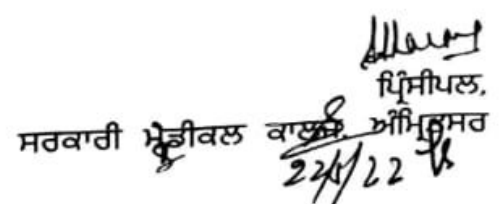 ਪ੍ਰਿੰਸੀਪਲ,
ਸਰਕਾਰੀ ਮੈਡੀਕਲ ਕਾਲਜ, ਅੰਮ੍ਰਿਤਸਰ